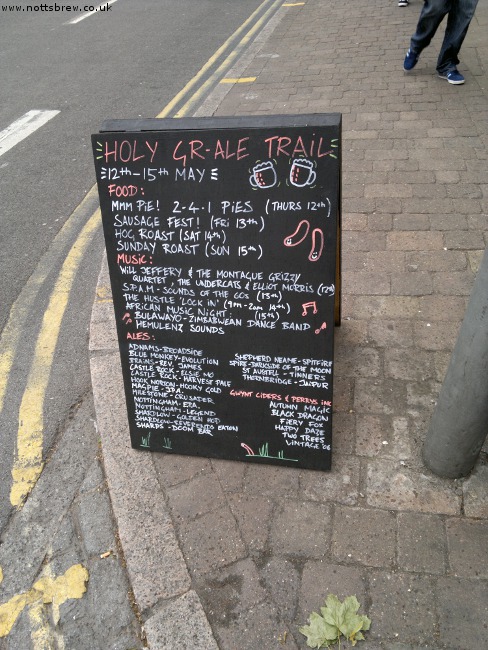 www.nottsbrew.co.uk
HOLY GR-ALE TRAIL
12th-15th MAY
FOOD:
MMM PIE! 2-4-1 PIES (THURS 12th)
SAUSAGE FEST! (FRI 13th)
HOG ROAST (SAT 14th)
SUNDAY ROAST (SUN 15th)
MUSIC:
WILL JEFFERY & THE MONTAGUE GRIZZY
QUARTET, THE UNDERCATS & ELLIOT MORRIS (12th)
S.P.A.M - SOUNDS OF THE 60s (13th)
THE HUSTLE 'LOCK IN' (9pm-2am 14th)
AFRICAN MUSIC NIGHT: (15th)
BULAWAYO - ZIMBABWEAN DANCE BAND
HEMULENZ SOUNDS
ALES:
ADNAMS-BROADSIDE
BLUE MONKEY-EVOLUTION
BRAINS-REV. JAMES
CASTLE ROCK-ELSIE MO
CASTLE ROCK-HARVEST PALE
HOOK NORTON-HOOKY GOLD
MAGPIE-IPA
MILESTONE-CRUSADER
NOTTINGHAM-ERA
NOTTINGHAM-LEGEND
SHARDLOW-GOLDEN HOP
SHARDLOW-REVERENDS EATON
SHARPS-DOOM BAR
SHEPHERD NEAME-SPITFIRE
SPIRE-DARKSIDE OF THE MOON
ST AUSTELL-TINNERS
THORNBRIDGE-JAIPUR
GWYNT CIDERS & PERRYS INC
AUTUMN MAGIC
BLACK DRAGON
FIERY FOX
HAPPY DAZE
TWO TREES
VINTAGE '08